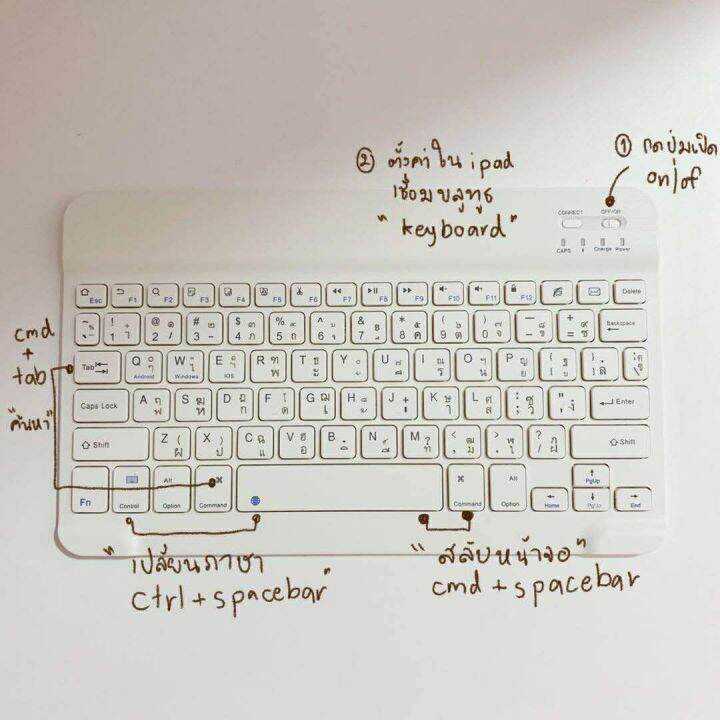 ① กดปุ่มเปิด
on/of
② ตั้งค่าใน ipad
เชื่อมบลูทูธ
"keyboard"
CONNECT OFF/ON
CAPS Charge Power
Esc F1 F2 F3 F4 F5 F6 F7 F8 F9 F10 F11 F12 Delete
~ ! 1 @ 2 # 3 $ 4 % 5 ^ 6 & 7 * 8 ( 9 ) 0 _ - + = Backspace
cmd
+
tab
Tab Q W E R T Y U I O P { [ } ]
Android Windows IOS
"ค้นหา"
Caps Lock A S D F G H J K L : ; " ' Enter
Shift Z X C V B N M < , > . ? / Shift
Fn Control Alt Option ⌘ Command ⌘ Command Alt Option Home PgUp PgUp End
"เปลี่ยนภาษา"
ctrl + spacebar
"สลับหน้าจอ"
cmd + spacebar